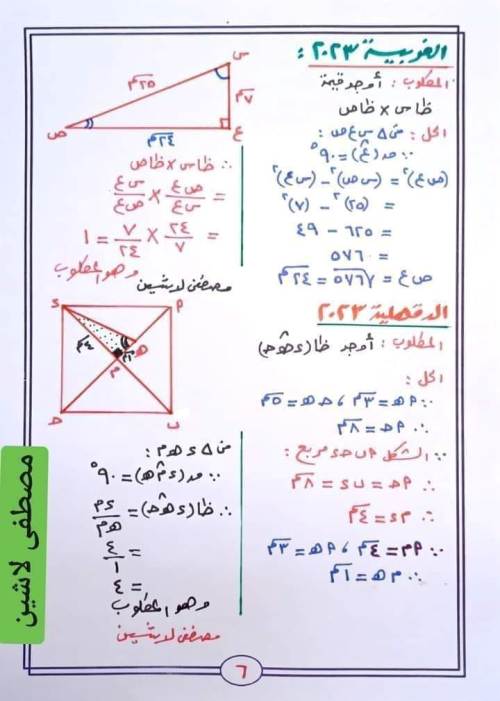 الغربية ٢٠٢٣ :
المطلوب : أوجد قيمة
ظا س × ظا ص
الحل : من Δ س ع ص :
∵ ق(ع̂) = ٩٠°
(ص ع)² = (س ص)² − (س ع)²
= (٢٥)² − (٧)²
= ٦٢٥ − ٤٩
= ٥٧٦
ص ع = √٥٧٦ = ٢٤ سم
س
٢٥ سم
٧ سم
ص
٢٤ سم
ع
∴ ظا س × ظا ص
= ص ع / س ع × س ع / ص ع
= ٢٤/٧ × ٧/٢٤ = ١
وهو المطلوب
مصطفى لاشين
الدقهلية ٢٠٢٣
المطلوب : أوجد ظا(د ه̂ ح)
الحل :
∵ أ ه = ٣ سم ، ح ه = ٥ سم
∴ أ ح = ٨ سم
∵ الشكل أ ب ح د مربع :
∴ أ ح = ب د = ٨ سم
∴ م د = ٤ سم
∵ أ م = ٤ سم ، أ ه = ٣ سم
∴ م ه = ١ سم
د
أ
ه
٤ سم
١ سم
م
ح
ب
من Δ د ه م :
∵ ق(د م̂ ه) = ٩٠°
∴ ظا(د ه̂ ح) = د م / ه م
= ٤/١
= ٤
وهو المطلوب
مصطفى لاشين
مصطفى لاشين
٦